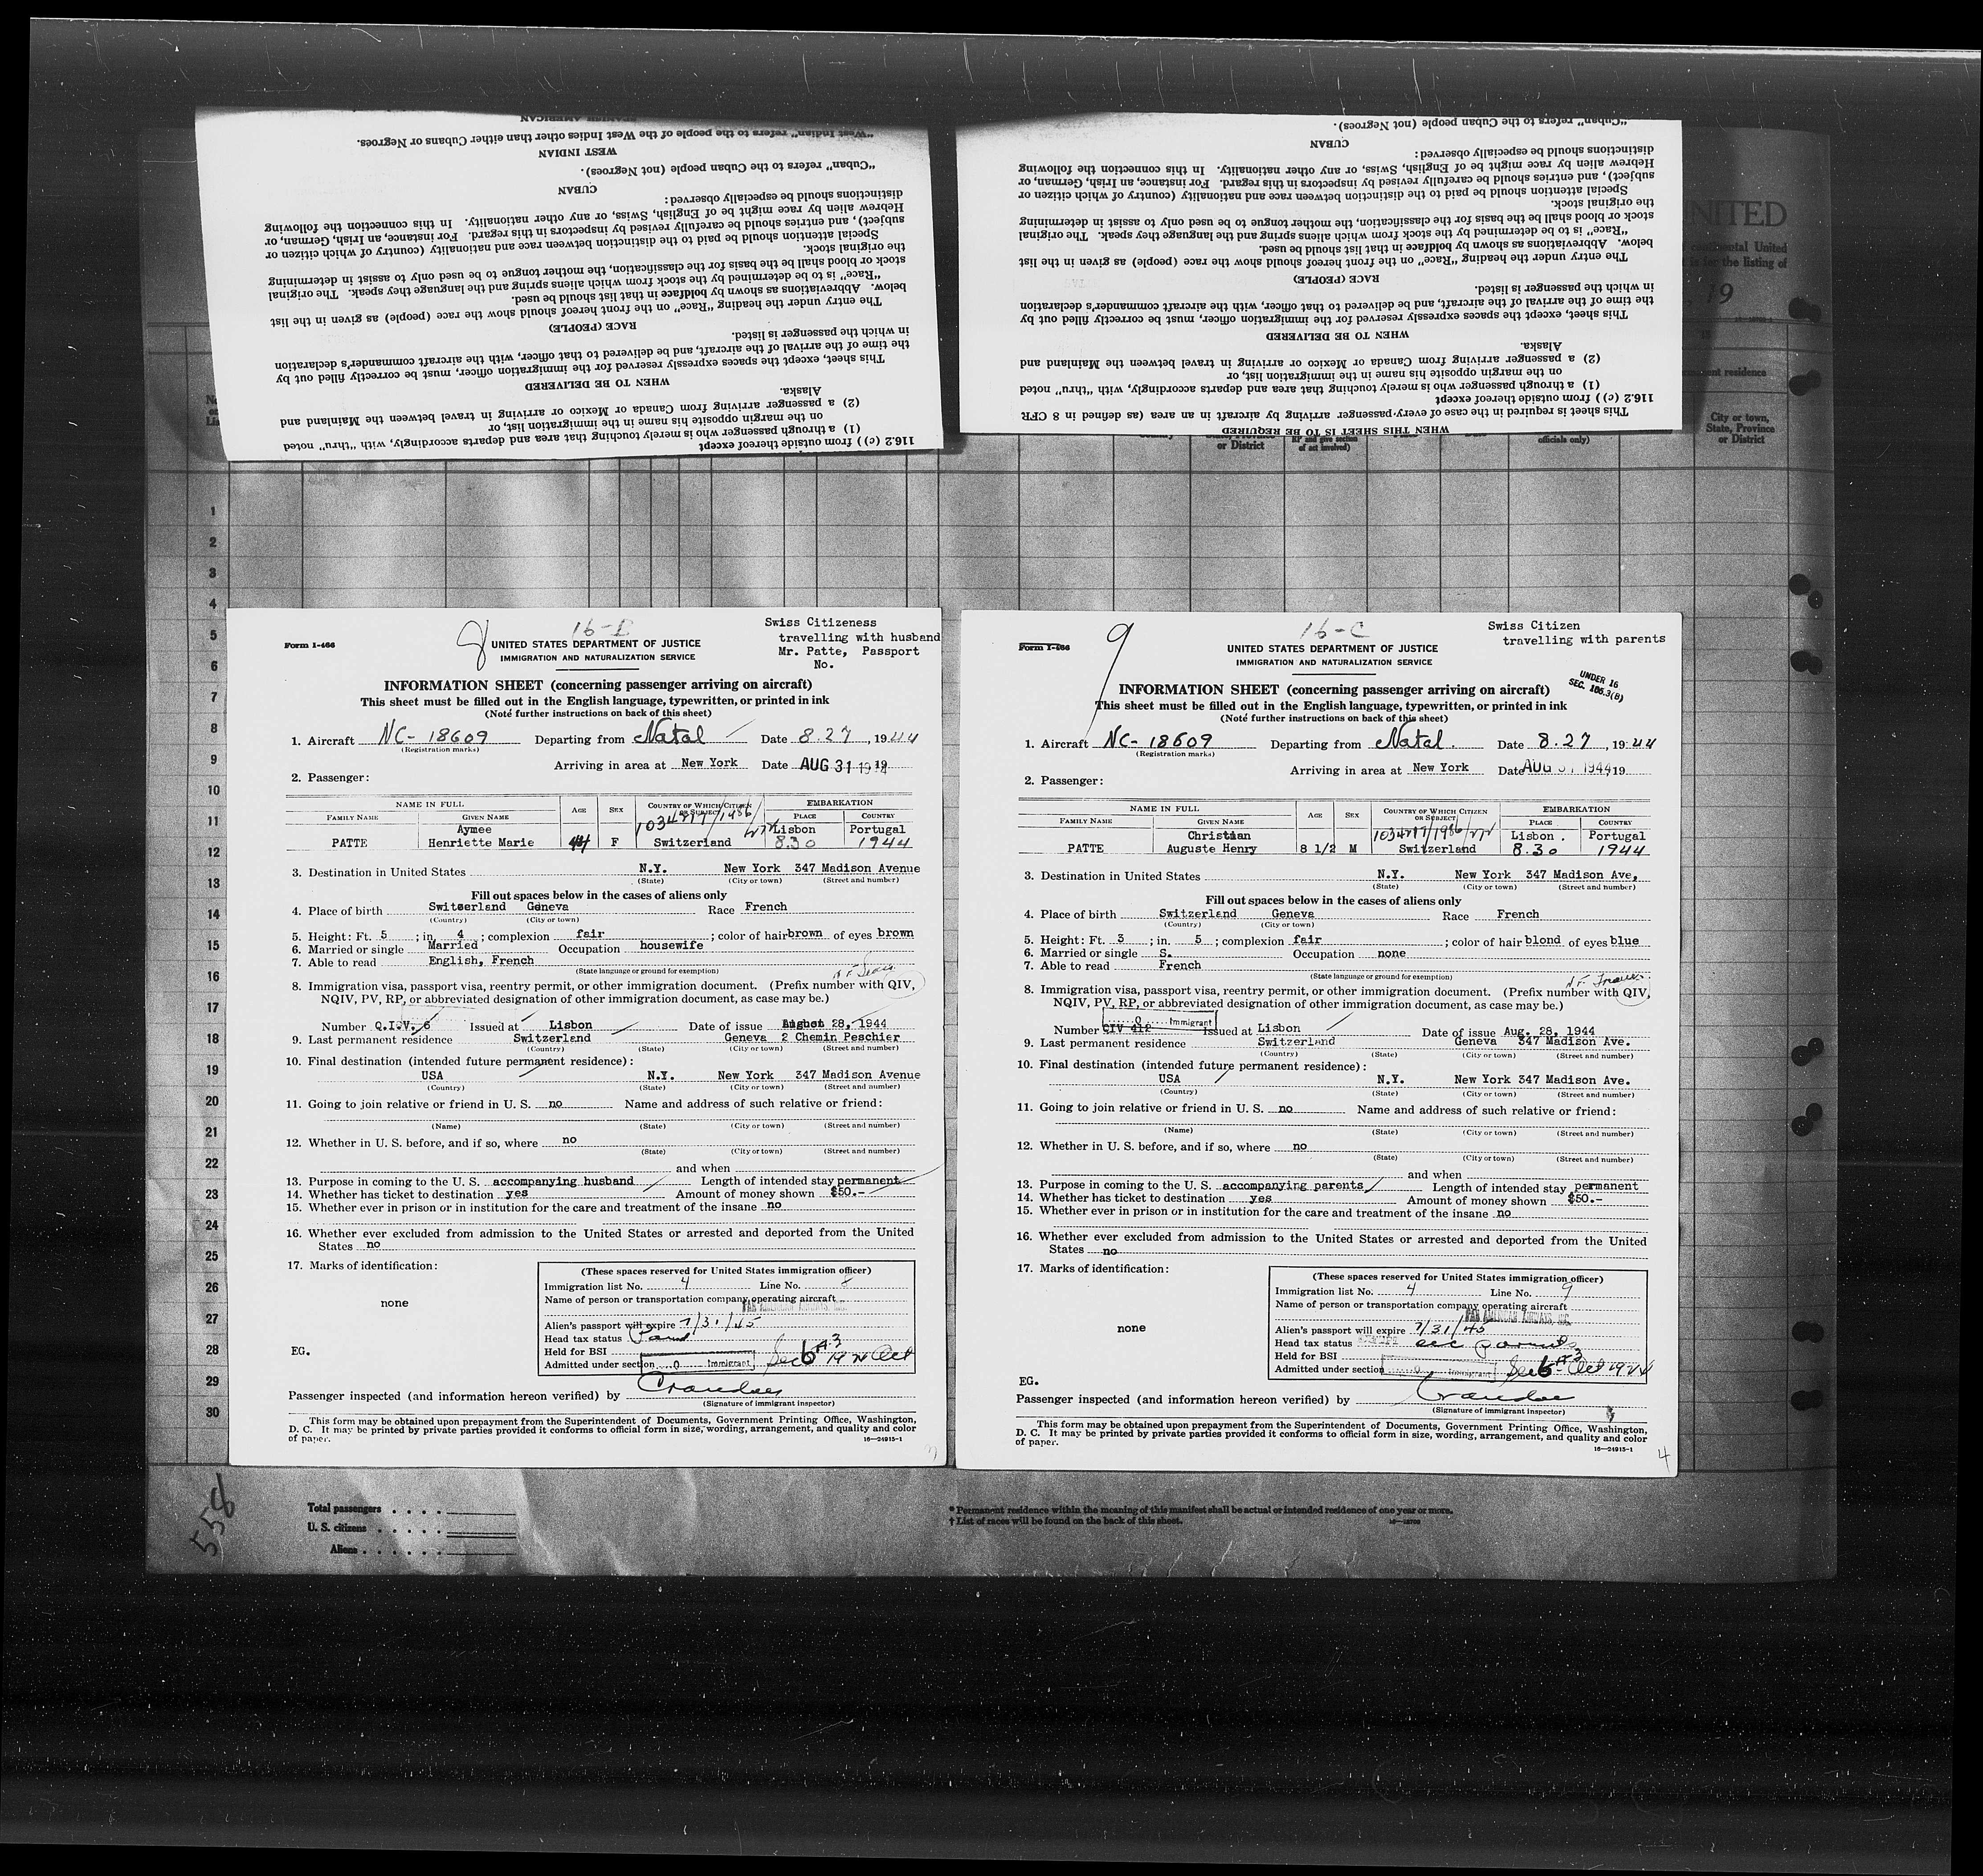 SPANISH AMERICAN
"West Indian" refers to the people of the West Indies other than either Cubans or Negroes.
WEST INDIAN
"Cuban" refers to the Cuban people (not Negroes).
CUBAN
distinctions should be especially observed:
Hebrew alien by race might be of English, Swiss, or any other nationality. In this connection the following
subject), and entries should be carefully revised by inspectors in this regard. For instance, an Irish, German, or
Special attention should be paid to the distinction between race and nationality (country of which citizen or
the original stock.
stock or blood shall be the basis for the classification, the mother tongue to be used only to assist in determining
"Race" is to be determined by the stock from which aliens spring and the language they speak. The original
below. Abbreviations as shown by boldface in that list should be used.
The entry under the heading "Race" on the front hereof should show the race (people) as given in the list
RACE (PEOPLE)
in which the passenger is listed.
the time of the arrival of the aircraft, and be delivered to that officer, with the aircraft commander's declaration
This sheet, except the spaces expressly reserved for the immigration officer, must be correctly filled out by
WHEN TO BE DELIVERED
Alaska.
(2) a passenger arriving from Canada or Mexico or arriving in travel between the Mainland and
on the margin opposite his name in the immigration list, or
(1) a through passenger who is merely touching that area and departs accordingly, with "thru" noted
116.2 (c) ) from outside thereof except
"Cuban" refers to the Cuban people (not Negroes).
CUBAN
distinctions should be especially observed:
Hebrew alien by race might be of English, Swiss, or any other nationality. In this connection the following
subject), and entries should be carefully revised by inspectors in this regard. For instance, an Irish, German, or
Special attention should be paid to the distinction between race and nationality (country of which citizen or
the original stock.
stock or blood shall be the basis for the classification, the mother tongue to be used only to assist in determining
"Race" is to be determined by the stock from which aliens spring and the language they speak. The original
below. Abbreviations as shown by boldface in that list should be used.
The entry under the heading "Race" on the front hereof should show the race (people) as given in the list
RACE (PEOPLE)
in which the passenger is listed.
the time of the arrival of the aircraft, and be delivered to that officer, with the aircraft commander's declaration
This sheet, except the spaces expressly reserved for the immigration officer, must be correctly filled out by
WHEN TO BE DELIVERED
Alaska.
(2) a passenger arriving from Canada or Mexico or arriving in travel between the Mainland and
on the margin opposite his name in the immigration list, or
(1) a through passenger who is merely touching that area and departs accordingly, with "thru" noted
116.2 (c) ) from outside thereof except
This sheet is required in the case of every passenger arriving by aircraft in an area (as defined in 8 CFR
WHEN THIS SHEET IS TO BE REQUIRED
NITED
continental United
for the listing of
19
residence
City or town,
State, Province
or District
or District
RP and give section
of act involved)
officials only)
1
2
3
4
5
6
7
8
9
10
11
12
13
14
15
16
17
18
19
20
21
22
23
24
25
26
27
28
29
30
Form I-466
8
16-B
Swiss Citizeness
travelling with husband
Mr. Patte, Passport
No.
UNITED STATES DEPARTMENT OF JUSTICE
IMMIGRATION AND NATURALIZATION SERVICE
INFORMATION SHEET (concerning passenger arriving on aircraft)
This sheet must be filled out in the English language, typewritten, or printed in ink
(Note further instructions on back of this sheet)
1. Aircraft NC-18609 Departing from Natal Date 8.27, 1944
(Registration marks)
Arriving in area at New York Date AUG 31 19
2. Passenger:
NAME IN FULL AGE SEX COUNTRY OF WHICH CITIZEN OR SUBJECT EMBARKATION
FAMILY NAME GIVEN NAME PLACE COUNTRY
Aymee Lisbon Portugal
PATTE Henriette Marie 44 F Switzerland 8.30 1944
3. Destination in United States N.Y. New York 347 Madison Avenue
(State) (City or town) (Street and number)
Fill out spaces below in the cases of aliens only
4. Place of birth Switzerland Geneva Race French
(Country) (City or town)
5. Height: Ft. 5 ; in. 4 ; complexion fair ; color of hair brown of eyes brown
6. Married or single Married Occupation housewife
7. Able to read English, French
(State language or ground for exemption)
8. Immigration visa, passport visa, reentry permit, or other immigration document. (Prefix number with QIV,
NQIV, PV, RP, or abbreviated designation of other immigration document, as case may be.)
Number Q.I.V. 6 Issued at Lisbon Date of issue August 28, 1944
9. Last permanent residence Switzerland Geneva 2 Chemin Peschier
(Country) (State) (City or town) (Street and number)
10. Final destination (intended future permanent residence):
USA N.Y. New York 347 Madison Avenue
(Country) (State) (City or town) (Street and number)
11. Going to join relative or friend in U. S. no Name and address of such relative or friend:
(Name) (State) (City or town) (Street and number)
12. Whether in U. S. before, and if so, where no
(State) (City or town) (Street and number)
and when
13. Purpose in coming to the U. S. accompanying husband Length of intended stay permanent
14. Whether has ticket to destination yes Amount of money shown $50.-
15. Whether ever in prison or in institution for the care and treatment of the insane no
16. Whether ever excluded from admission to the United States or arrested and deported from the United
States no
17. Marks of identification:
none
EG.
(These spaces reserved for United States immigration officer)
Immigration list No. 4 Line No. 8
Name of person or transportation company operating aircraft
PAN AMERICAN AIRWAYS, INC.
Alien's passport will expire 7/31/45
Head tax status
Held for BSI
Admitted under section Q Immigrant
Passenger inspected (and information hereon verified) by
(Signature of immigrant inspector)
This form may be obtained upon prepayment from the Superintendent of Documents, Government Printing Office, Washington,
D. C. It may be printed by private parties provided it conforms to official form in size, wording, arrangement, and quality and color
of paper.
16—24915-1
Form I-466
9
16-C
Swiss Citizen
travelling with parents
UNDER 16
UNITED STATES DEPARTMENT OF JUSTICE
IMMIGRATION AND NATURALIZATION SERVICE
INFORMATION SHEET (concerning passenger arriving on aircraft)
This sheet must be filled out in the English language, typewritten, or printed in ink
(Note further instructions on back of this sheet)
1. Aircraft NC-18609 Departing from Natal. Date 8.27, 1944
(Registration marks)
Arriving in area at New York Date AUG 31 1944 19
2. Passenger:
NAME IN FULL AGE SEX COUNTRY OF WHICH CITIZEN OR SUBJECT EMBARKATION
FAMILY NAME GIVEN NAME PLACE COUNTRY
Christian Lisbon. Portugal
PATTE Auguste Henry 8 1/2 M Switzerland 8.30 1944
3. Destination in United States N.Y. New York 347 Madison Ave,
(State) (City or town) (Street and number)
Fill out spaces below in the cases of aliens only
4. Place of birth Switzerland Geneva Race French
(Country) (City or town)
5. Height: Ft. 3 ; in. 5 ; complexion fair ; color of hair blond of eyes blue
6. Married or single S. Occupation none
7. Able to read French
(State language or ground for exemption)
8. Immigration visa, passport visa, reentry permit, or other immigration document. (Prefix number with QIV,
NQIV, PV, RP, or abbreviated designation of other immigration document, as case may be.)
Q Immigrant
Number QIV 412 Issued at Lisbon Date of issue Aug. 28, 1944
9. Last permanent residence Switzerland Geneva 347 Madison Ave.
(Country) (State) (City or town) (Street and number)
10. Final destination (intended future permanent residence):
USA N.Y. New York 347 Madison Ave.
(Country) (State) (City or town) (Street and number)
11. Going to join relative or friend in U. S. no Name and address of such relative or friend:
(Name) (State) (City or town) (Street and number)
12. Whether in U. S. before, and if so, where no
(State) (City or town) (Street and number)
and when
13. Purpose in coming to the U. S. accompanying parents Length of intended stay permanent
14. Whether has ticket to destination yes Amount of money shown $50.-
15. Whether ever in prison or in institution for the care and treatment of the insane no
16. Whether ever excluded from admission to the United States or arrested and deported from the United
States no
17. Marks of identification:
none
EG.
(These spaces reserved for United States immigration officer)
Immigration list No. 4 Line No. 9
Name of person or transportation company operating aircraft
PAN AMERICAN AIRWAYS, INC.
Alien's passport will expire 7/31/45
Head tax status
Held for BSI
Admitted under section Q Immigrant
Passenger inspected (and information hereon verified) by
(Signature of immigrant inspector)
This form may be obtained upon prepayment from the Superintendent of Documents, Government Printing Office, Washington,
D. C. It may be printed by private parties provided it conforms to official form in size, wording, arrangement, and quality and color
of paper.
16—24915-1
4
558
Total passengers
U. S. citizens
Aliens
* Permanent residence within the meaning of this manifest shall be actual or intended residence of one year or more.
† List of races will be found on the back of this sheet.